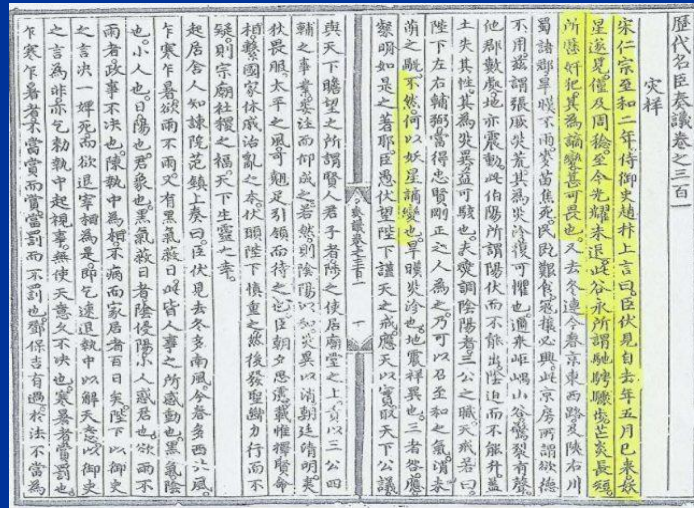 歷代名臣奏議卷之三百一
灾祥
宋仁宗至和二年侍御史趙抃上言曰臣伏見自去年五月已来妖
星遂見僅及周稔至今光耀未退此谷永所謂馳騁驟步芒炎長短
所歷奸犯其為謫變甚可畏也又去冬連今春京東西路及陝右川
蜀諸郡旱暵不雨麥苗焦死民既艱食寇攘必興此京房所謂欲德
不用茲謂張厥灾荒其為灾沴復可懼也邇来岠嵎小谷驚裂有聲
他郡數處地亦震動此伯陽所謂陽伏而不能出陰迫而不能升蓋
土失其性其為灾異益可駭也夫燮調陰陽者三公之職天戒若曰
陛下左右輔弼當得忠賢剛正之人為之乃可以召至和之氣消未
萌之眚不然何以妖星謫變也旱暵灾沴也地震祥異也三者咎應
察明如是之著耶臣愚伏望陛下謹天之戒應天以實取天下公議
奏議卷之三百一 一
與天下瞻望之所謂賢人君子者陟之使居廟堂之上責以三公四
輔之事業安注而仰成之若然則陰陽以和灾異以消朝廷清明夷
狄畏服太平之風可翹足引領而待之也臣朝夕思慮惟擇賢命
相繫國家休戚治亂之本伏願陛下慎重之然後發聖斷力行而不
疑則宗廟社稷之福天下生靈之幸
起居舍人知諫院范鎮上奏曰臣伏見去冬多南風今春多西北風
乍寒乍暑欲雨不雨又有黑氣蔽日此皆人事之所感動也黑氣陰
也小人也日陽也君象也黑氣蔽日者陰侵陽小人惑君也欲雨不
雨者政事不决也陳執中為相不病而家居者百日矣陛下以御史
之言决一婢死而欲退宰相為是即乞速退執中以解天怒以御史
之言為非亦乞勑執中起視事無使天意久不决也寒暑者賞罰也
乍寒乍暑者不當賞而賞當罰而不罰也鄧保吉有過於法不當為